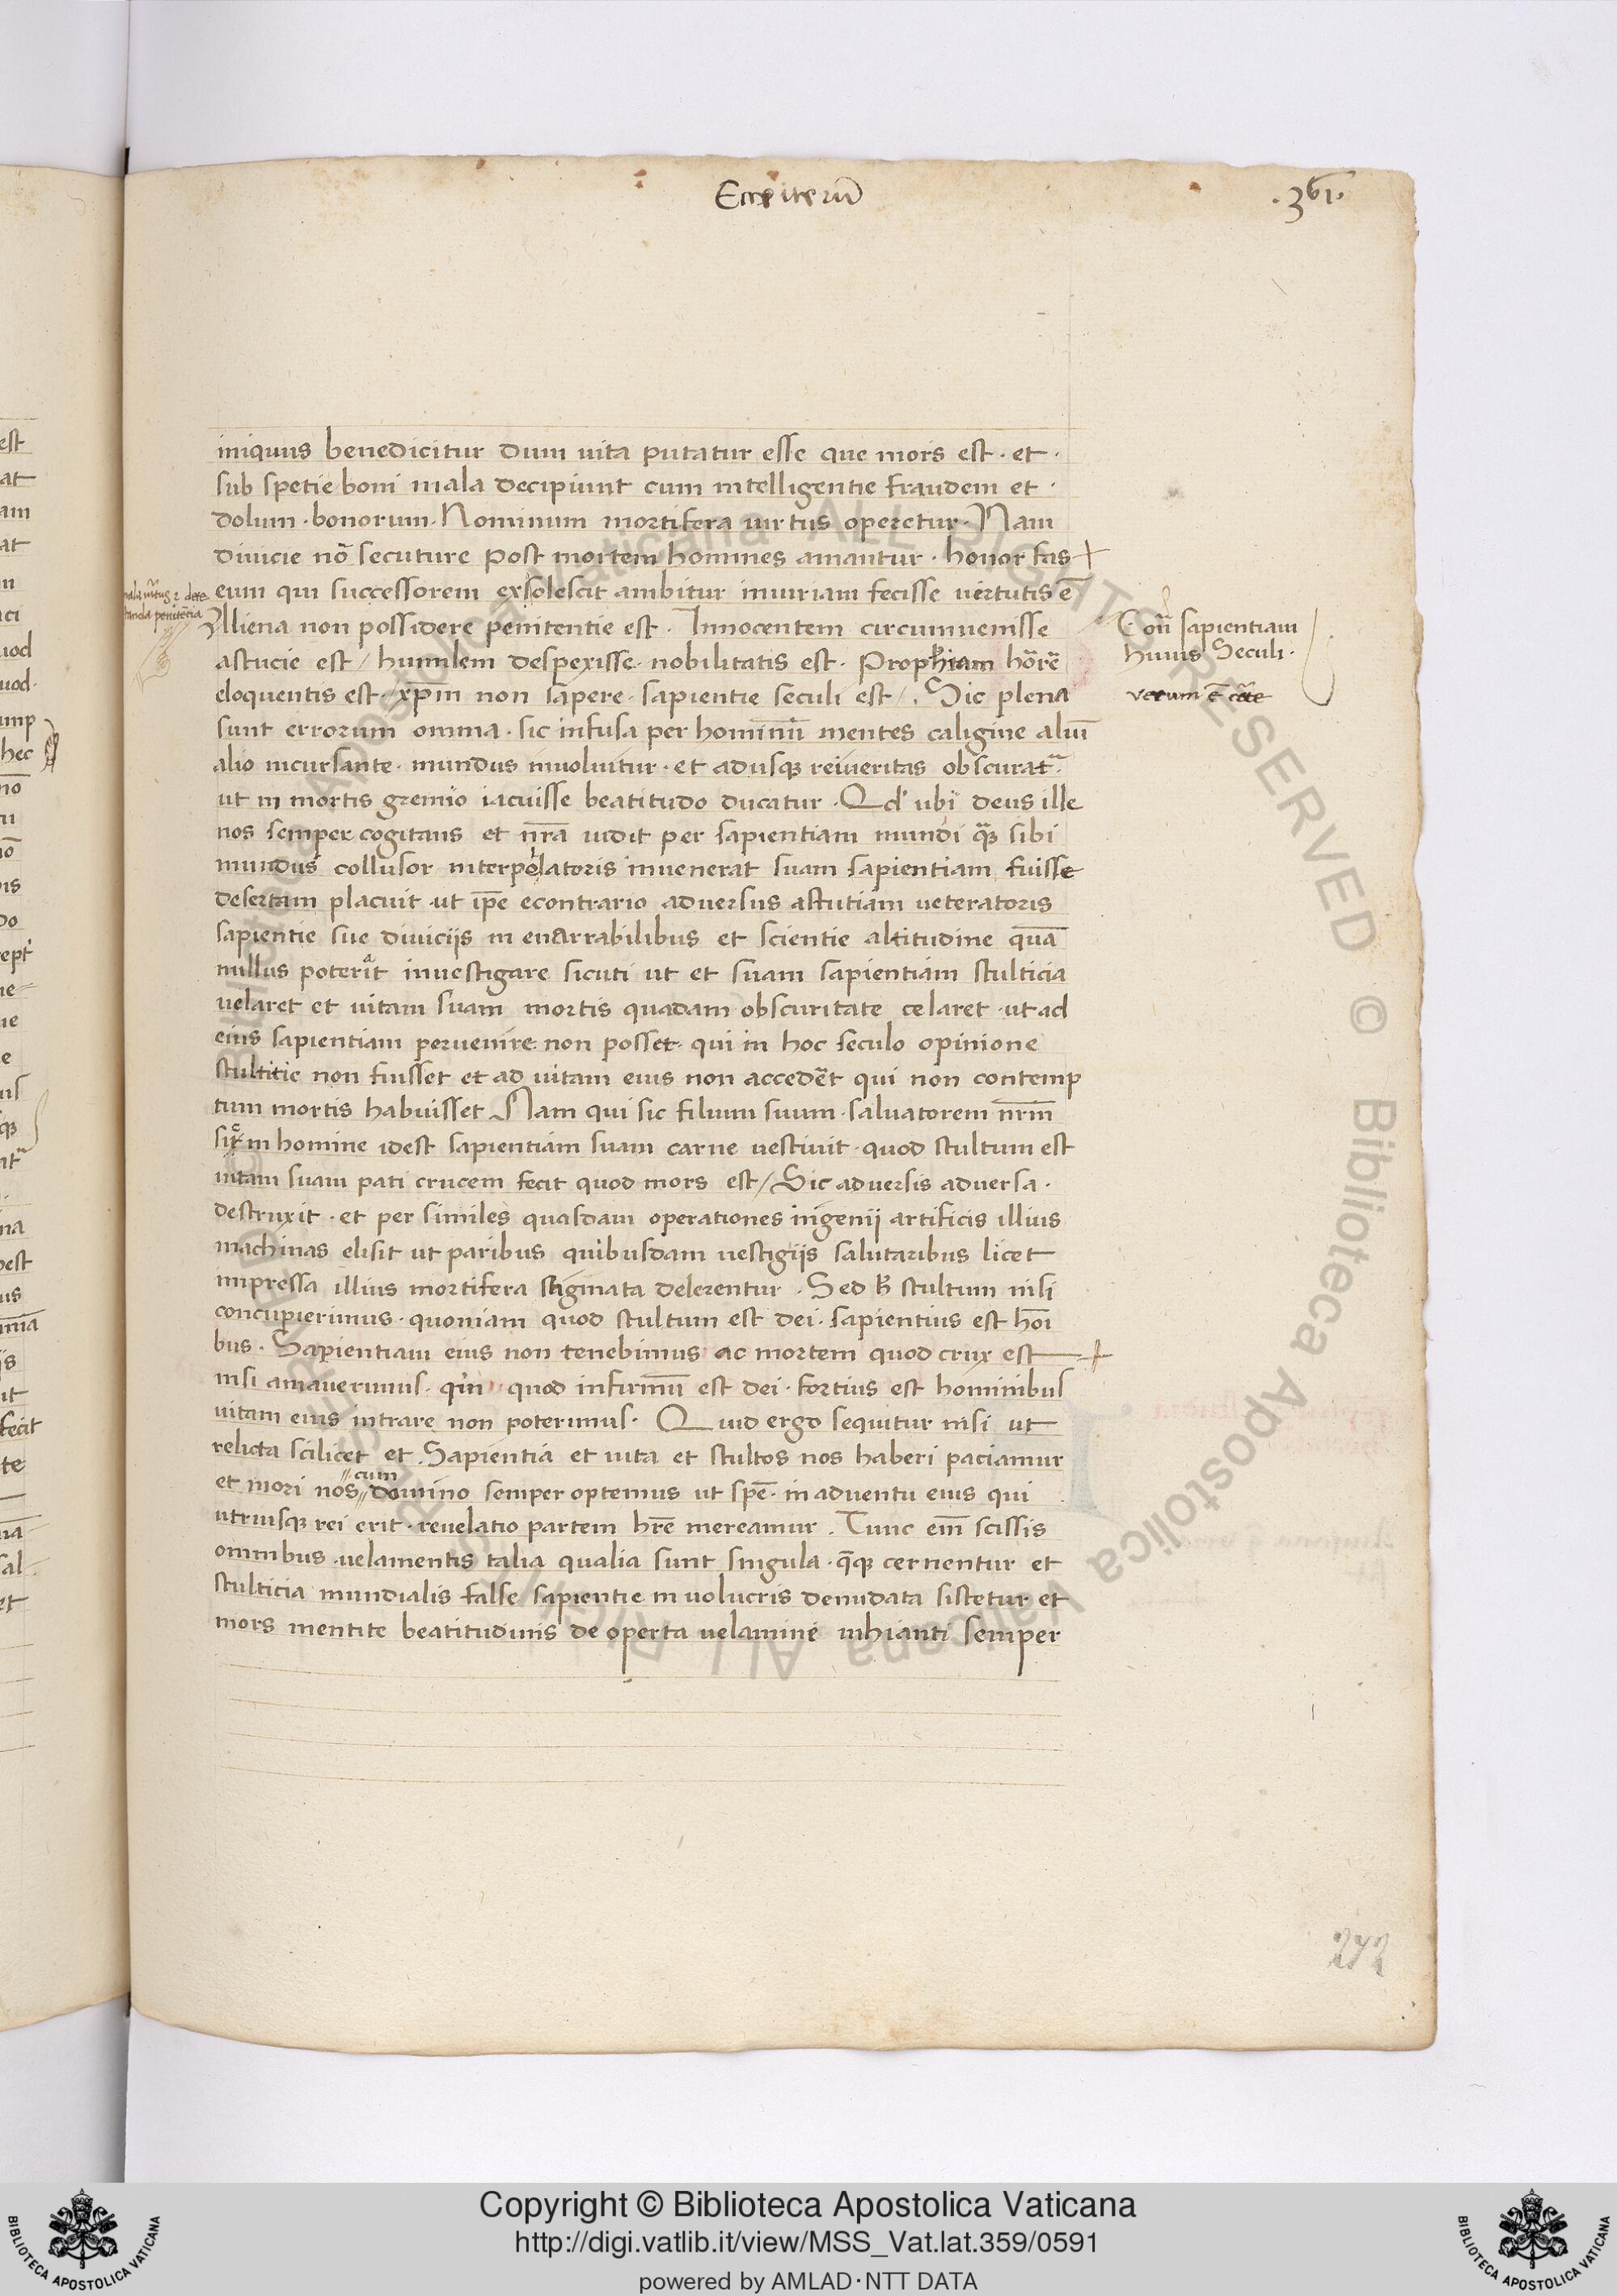 Ecce iterū
.361.
iniquus benedicitur dum uita putatur esse que mors est . et .
sub spetie boni mala decipiunt cum intelligentie fraudem et .
dolum . bonorum . Nominum mortifera uirtus operetur . Nam
diuicie nō secuture post mortem homines amantur . honor fas
eum qui successorem exsolescit ambitur iniuriam fecisse uertutis ē
Alliena non possidere penitentie est . Innocentem circumuenisse
astucie est / humilem despexisse . nobilitatis est . Prophiam hōrē
eloquentis est . xp̄m non sapere . sapientie seculi est / . Sic plena
sunt errorum omnia . sic infusa per hominū mentes caligine aliū
alio incursante . mundus inuoluitur . et adusqȝ rei ueritas obscurat
ut in mortis gremio iacuisse beatitudo ducatur . Qd' ubi deus ille
nos semper cogitans et nr̄a uidit per sapientiam mundi quā sibi
mundus collusor interpolatoris inuenerat suam sapientiam fuisse
desertam placuit . ut ip̄e econtrario aduersus astutiam ueteratoris
sapientie sue diuiciis in enarrabilibus et scientie altitudine quā
nullus poterat inuestigare sicuti ut et suam sapientiam stulticia
uelaret et uitam suam mortis quadam obscuritate celaret . ut ad
eius sapientiam peruenire non posset . qui in hoc seculo opinione
stultitie non fuisset et ad uitam eius non accedēt qui non contemp
tum mortis habuisset Nam qui sic filium suum . saluatorem nr̄m
in homine idest sapientiam suam carne uestiuit . quod stultum est
uitam suam pati crucem fecit quod mors est / Sic aduersis aduersa .
destruxit . et per similes quasdam operationes ingenii artificis illius
machinas elisit ut paribus quibusdam uestigiis salutaribus licet
impressa illius mortifera stigmata delerentur . Sed h̄ stultum nisi
concupierimus . quoniam quod stultum est dei . sapientius est hoī
bus . Sapientiam eius non tenebimus ac mortem quod crux est
nisi amauerimus . qm̄ quod infirmū est dei . fortius est hominibus
uitam eius intrare non poterimus . Quid ergo sequitur nisi ut
relicta scilicet et Sapientia et uita et stultos nos haberi paciamur
et mori nos cum domino semper optemus ut spē . in aduentu eius qui
utriusqȝ rei erit . reuelatio partem hr̄e mereamur . Tunc em̄ scissis
omnibus . uelamentis talia qualia sunt singula . qȩqȝ cernentur et
stulticia mundialis false sapientie in uolucris denudata sistetur et
mors mentite beatitudinis de operta uelamine inhianti semper
Con̄ sapientiam
huius Seculi .
verum ē
272
Copyright © Biblioteca Apostolica Vaticana
http://digi.vatlib.it/view/MSS_Vat.lat.359/0591
powered by AMLAD·NTT DATA
BIBLIOTECA APOSTOLICA VATICANA
BIBLIOTECA APOSTOLICA VATICANA